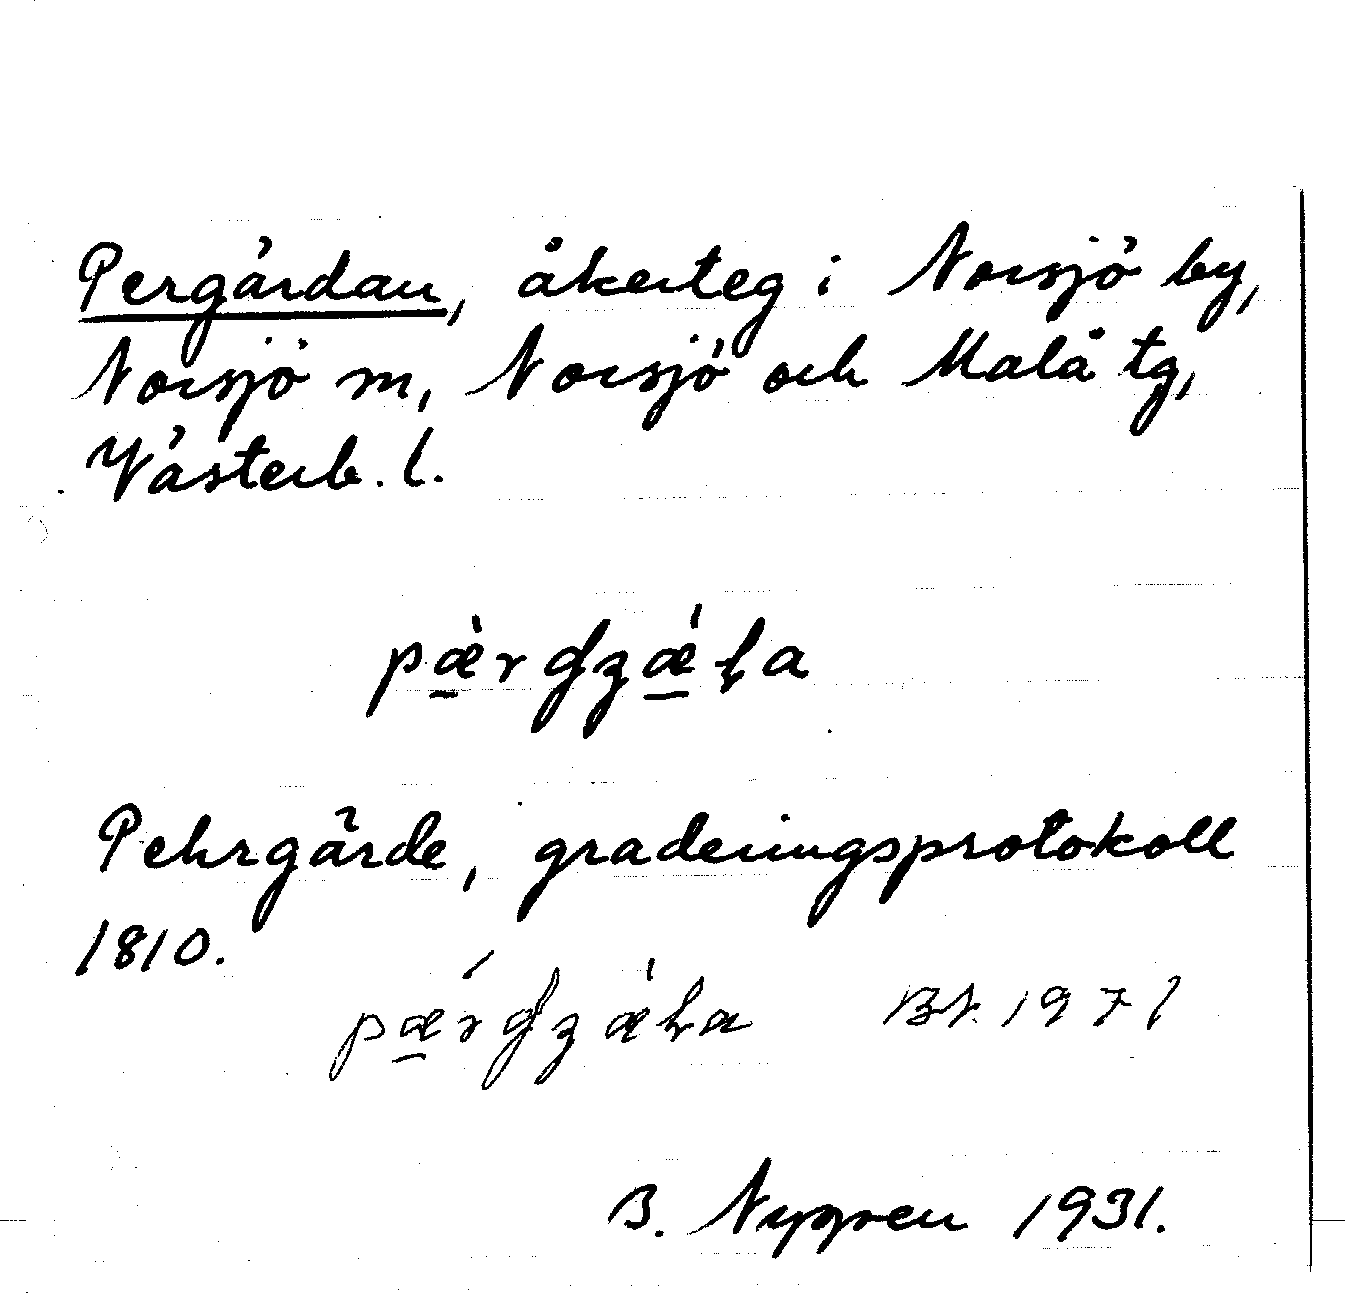 Pergärdan, åkerteg i Norsjö by,
Norsjö m, Norsjö och Malå tg,
Västerb. l.
Pehrgärde, graderingsprotokoll
1810.
Bt. 1971
B. Nygren 1931.